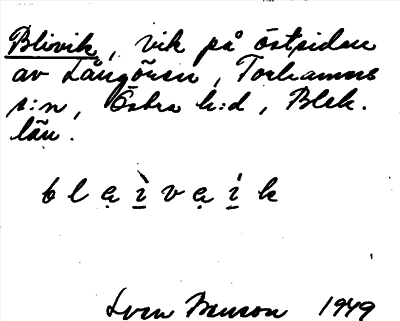 Blivik, vik på östsidan
av Långören, Torhamns
s:n, Östra h:d, Blek.
län.
b l ạ ì v ạ í k
Sven Benson 1949